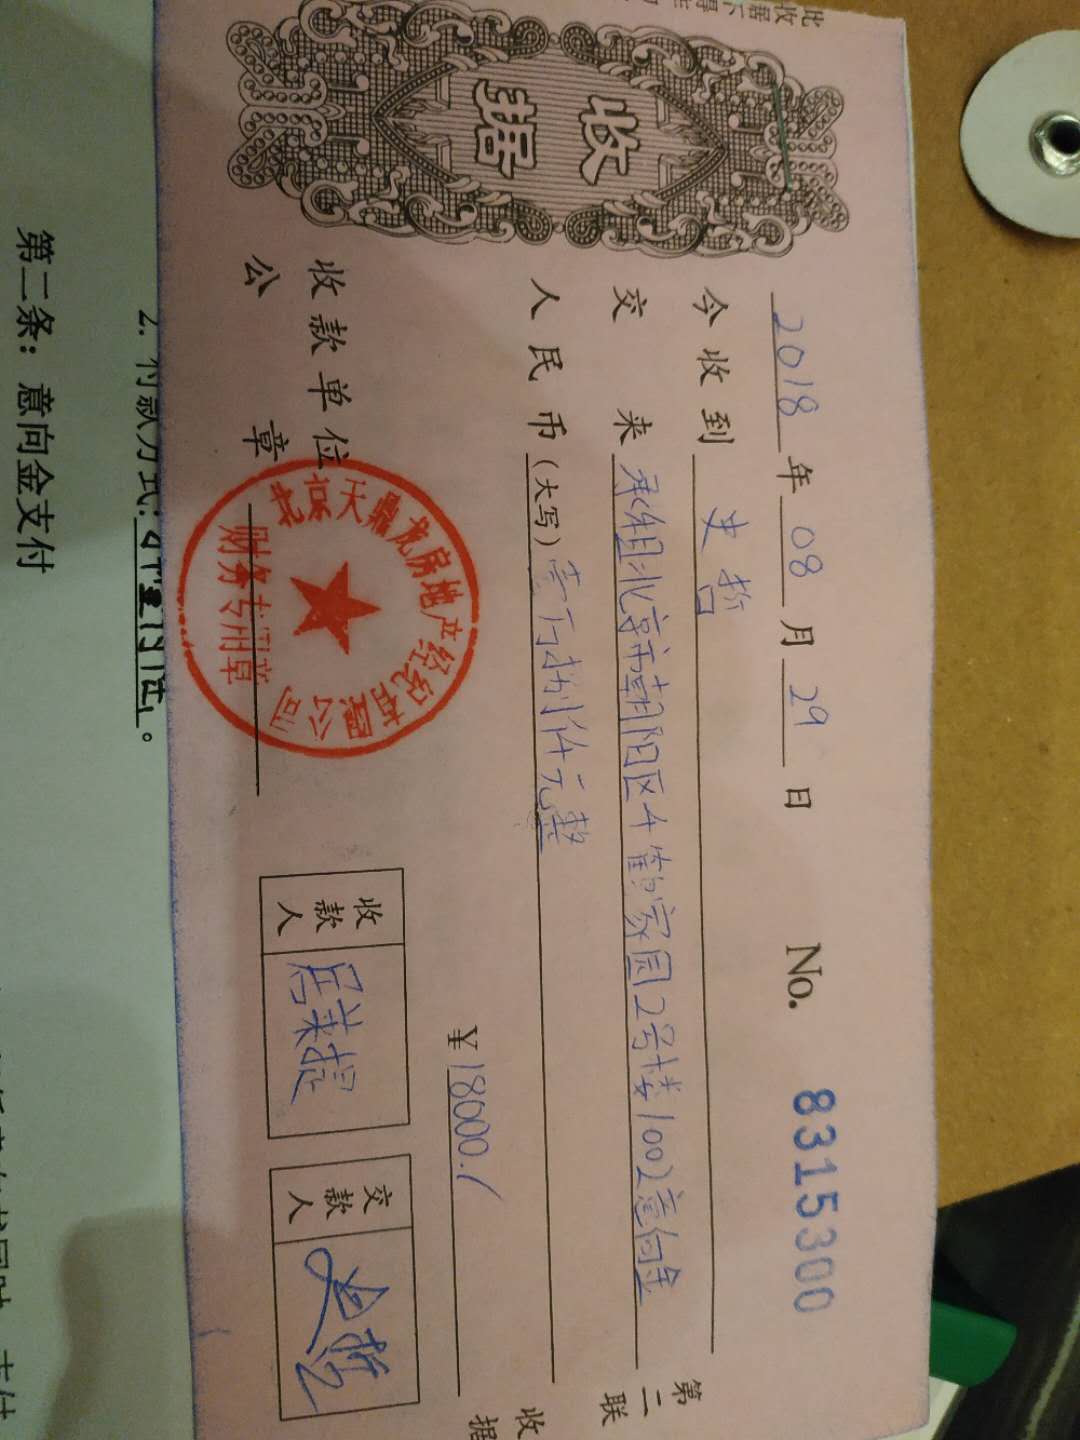 收据
2018年08月29日 No. 8315300
今收到 史哲
交来 承租北京市朝阳区牛萬家园2号楼1002意向金
人民币(大写) 壹万捌仟元整
¥18000./
收款单位
公章
北京天鼎龙房地产经纪有限公司
财务专用章
收款人
交款人 史哲
第二联
收据
2. 付款方式:
第二条：意向金支付